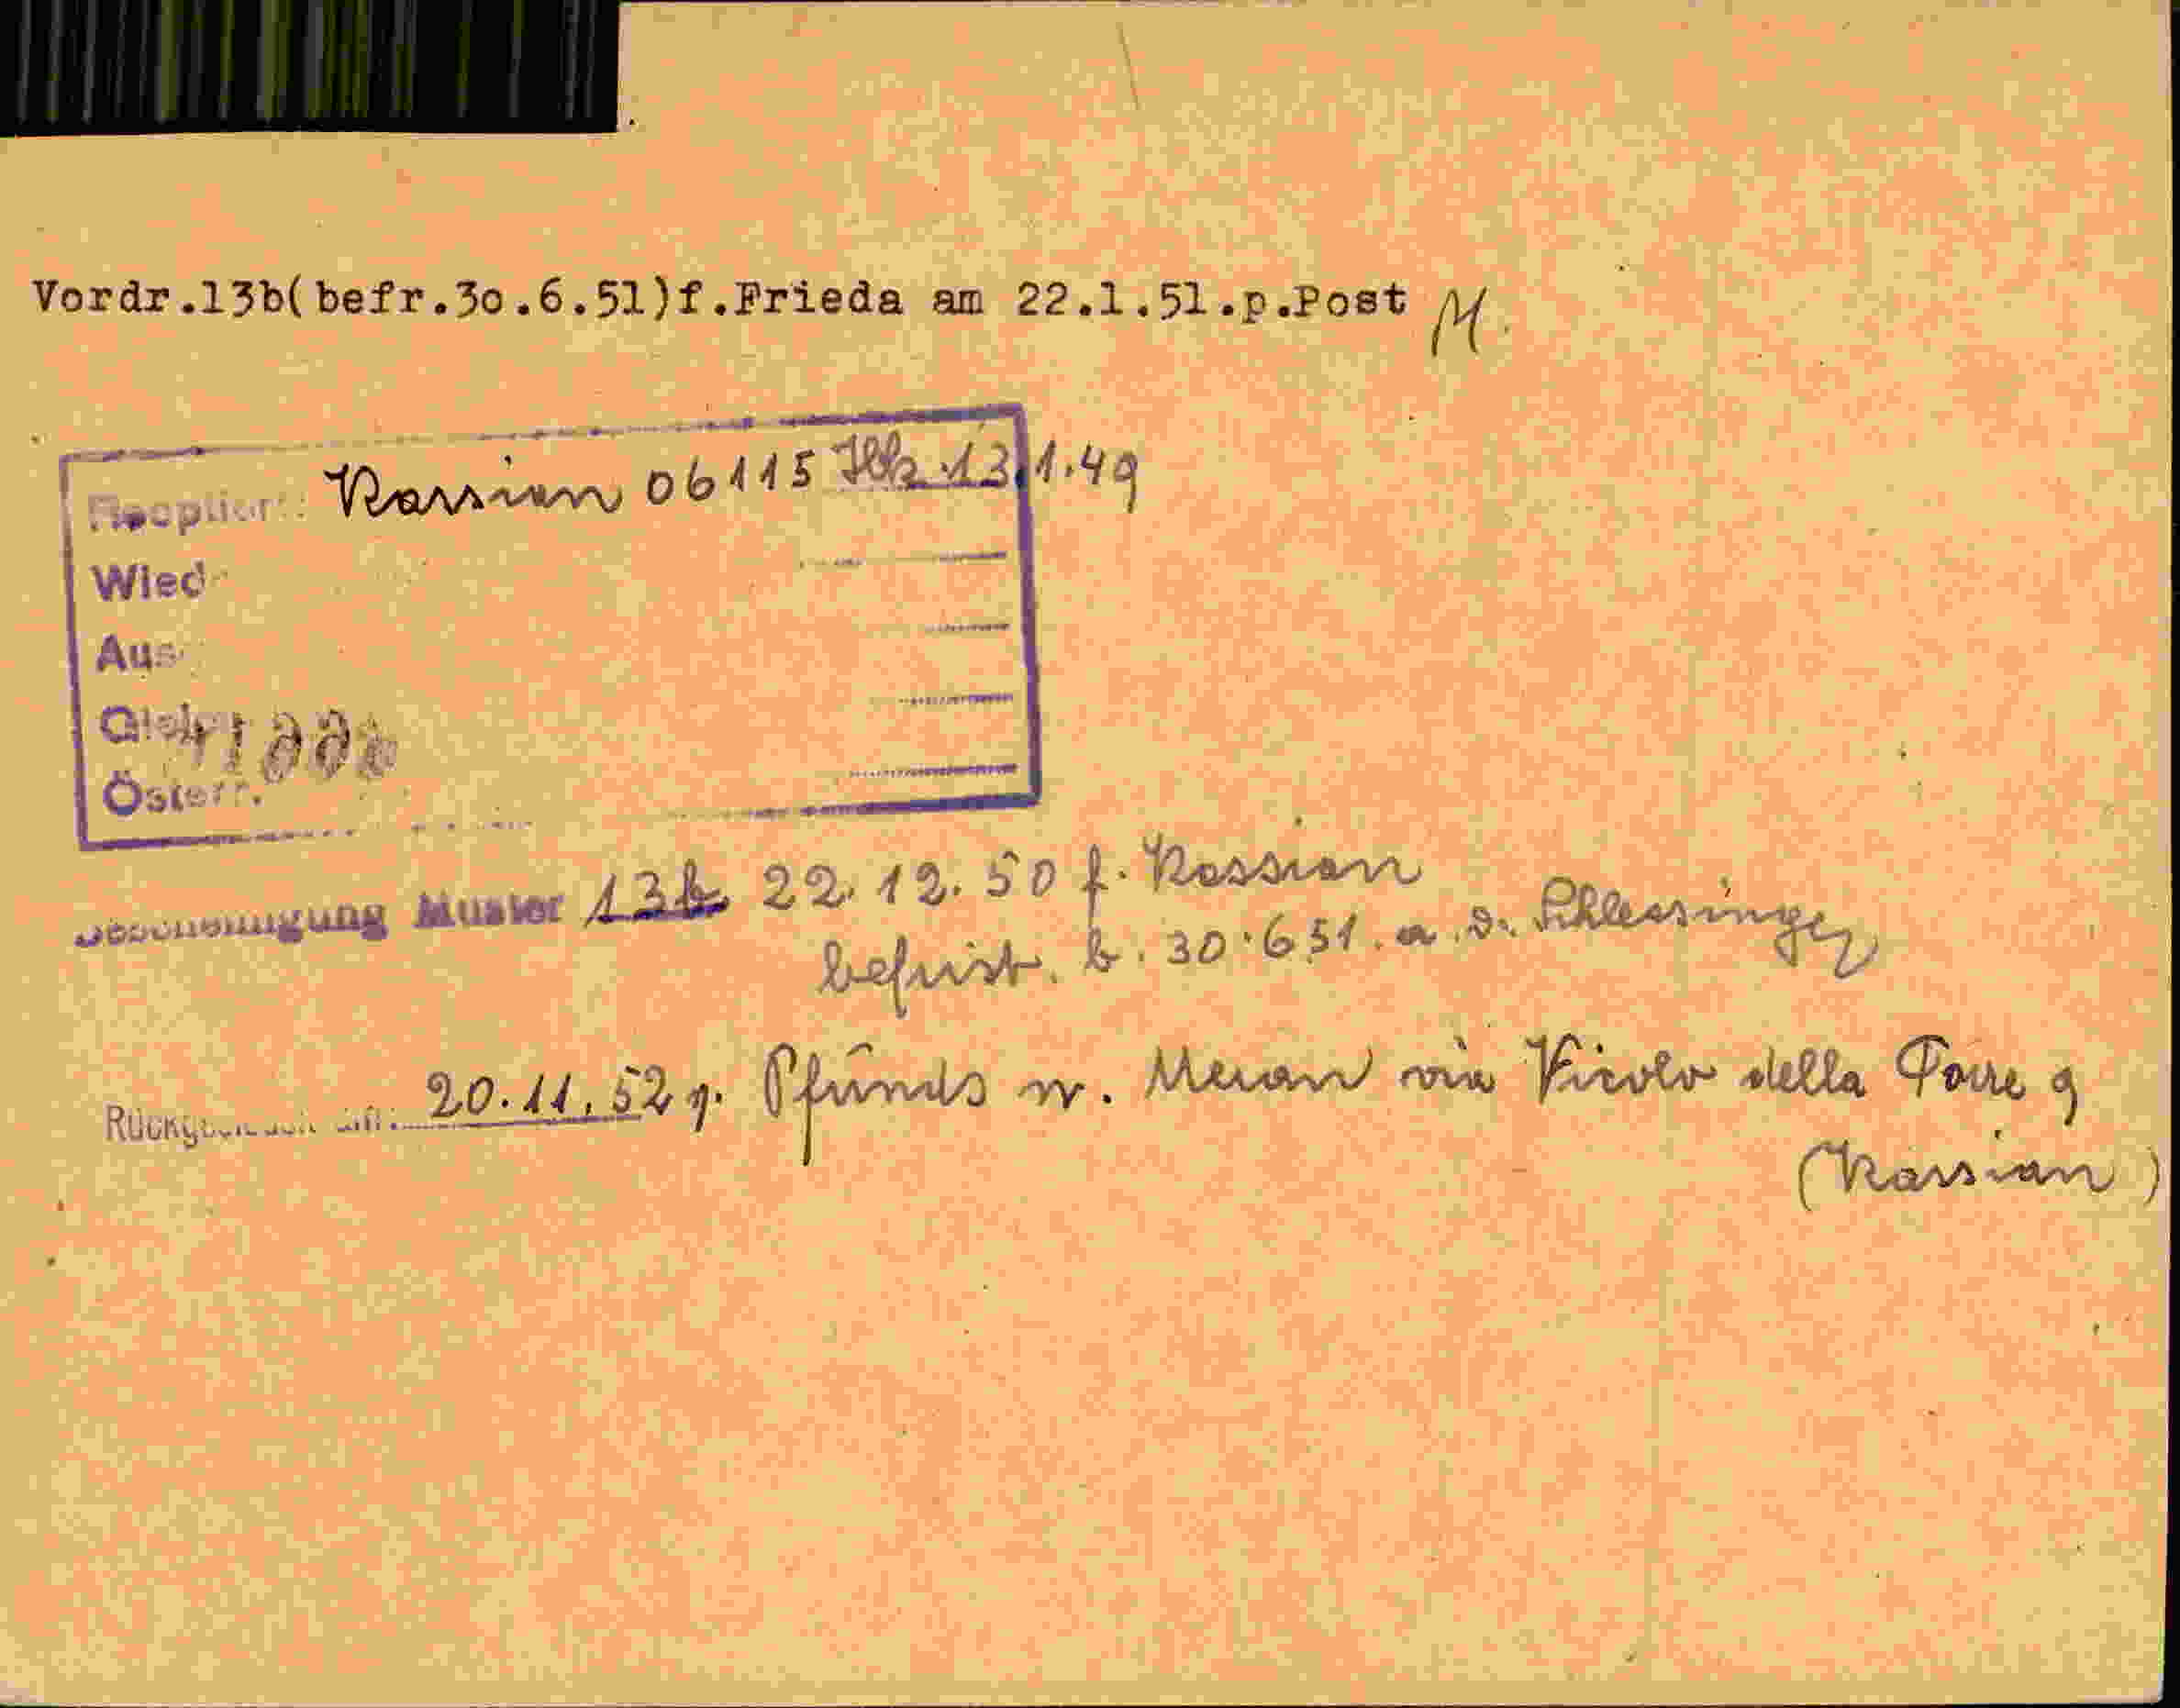 Vordr.13b(befr.30.6.51)f.Frieda am 22.1.51.p.Post M.
Reoptiert: Kassian 06115 Ibk 13.1.49
Wied
Aus
Österr.
Bescheinigung Muster 13b 22.12.50 f. Kassian
befrist. b. 30.6.51. a. d. Schlessinger
20.11.52 g. Pfunds n. Meran via Vicolo della Torre 9
(Kassian)